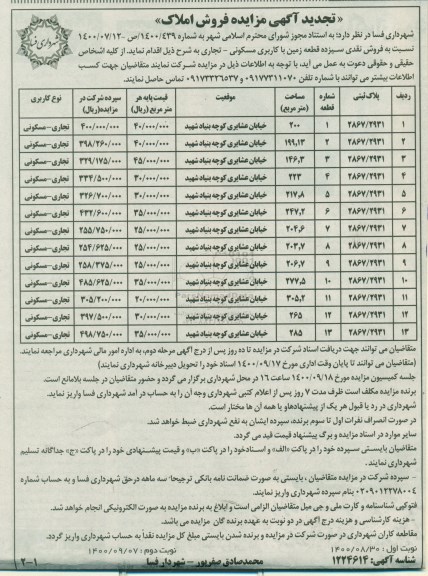 «تجدید آگهی مزایده فروش املاک»
شهرداری فسا
شهرداری فسا در نظر دارد: به استناد مجوز شورای محترم اسلامی شهر به شماره ۱۴۰۰/۴۳۹/ص -۱۴۰۰/۰۷/۱۲
نسبت به فروش نقدی سیزده قطعه زمین با کاربری مسکونی - تجاری به شرح ذیل اقدام نماید. از کلیه اشخاص
حقیقی و حقوقی دعوت به عمل می آید، با توجه به اطلاعات ذیل در مزایده شرکت نمایند متقاضیان جهت کسب
اطلاعات بیشتر می توانند با شماره تلفن ۰۹۱۷۷۳۱۱۰۷۰ و ۰۹۱۷۳۳۲۶۵۳۷ تماس حاصل نمایند.
ردیف | پلاک ثبتی | شماره قطعه | مساحت (متر مربع) | موقعیت | قیمت پایه هر متر مربع (ریال) | سپرده شرکت در مزایده(ریال) | نوع کاربری
۱ | ۲۸۶۷/۲۹۳۱ | ۱ | ۲۰۰ | خیابان عشایری کوچه بنیاد شهید | ۴۰/۰۰۰/۰۰۰ | ۴۰۰/۰۰۰/۰۰۰ | تجاری-مسکونی
۲ | ۲۸۶۷/۲۹۳۱ | ۲ | ۱۹۹,۱۳ | خیابان عشایری کوچه بنیاد شهید | ۴۰/۰۰۰/۰۰۰ | ۳۹۸/۲۶۰/۰۰۰ | تجاری-مسکونی
۳ | ۲۸۶۷/۲۹۳۱ | ۳ | ۱۴۶,۳ | خیابان عشایری کوچه بنیاد شهید | ۴۵/۰۰۰/۰۰۰ | ۳۲۹/۱۷۵/۰۰۰ | تجاری-مسکونی
۴ | ۲۸۶۷/۲۹۳۱ | ۴ | ۲۲۳ | خیابان عشایری کوچه بنیاد شهید | ۳۰/۰۰۰/۰۰۰ | ۳۳۴/۵۰۰/۰۰۰ | تجاری-مسکونی
۵ | ۲۸۶۷/۲۹۳۱ | ۵ | ۲۱۷,۸ | خیابان عشایری کوچه بنیاد شهید | ۳۰/۰۰۰/۰۰۰ | ۳۲۶/۷۰۰/۰۰۰ | تجاری-مسکونی
۶ | ۲۸۶۷/۲۹۳۱ | ۶ | ۲۴۷,۲ | خیابان عشایری کوچه بنیاد شهید | ۳۵/۰۰۰/۰۰۰ | ۴۳۲/۶۰۰/۰۰۰ | تجاری-مسکونی
۷ | ۲۸۶۷/۲۹۳۱ | ۷ | ۲۰۴,۶ | خیابان عشایری کوچه بنیاد شهید | ۲۵/۰۰۰/۰۰۰ | ۲۵۵/۷۵۰/۰۰۰ | تجاری-مسکونی
۸ | ۲۸۶۷/۲۹۳۱ | ۸ | ۲۰۳,۷ | خیابان عشایری کوچه بنیاد شهید | ۲۵/۰۰۰/۰۰۰ | ۲۵۴/۶۲۵/۰۰۰ | تجاری-مسکونی
۹ | ۲۸۶۷/۲۹۳۱ | ۹ | ۲۰۶,۷ | خیابان عشایری کوچه بنیاد شهید | ۲۵/۰۰۰/۰۰۰ | ۲۵۸/۳۷۵/۰۰۰ | تجاری-مسکونی
۱۰ | ۲۸۶۷/۲۹۳۱ | ۱۰ | ۲۷۷,۵ | خیابان عشایری کوچه بنیاد شهید | ۳۵/۰۰۰/۰۰۰ | ۴۸۵/۶۲۵/۰۰۰ | تجاری-مسکونی
۱۱ | ۲۸۶۷/۲۹۳۱ | ۱۱ | ۳۰۵,۲ | خیابان عشایری کوچه بنیاد شهید | ۲۰/۰۰۰/۰۰۰ | ۳۰۵/۲۰۰/۰۰۰ | تجاری-مسکونی
۱۲ | ۲۸۶۷/۲۹۳۱ | ۱۲ | ۲۶۵ | خیابان عشایری کوچه بنیاد شهید | ۳۰/۰۰۰/۰۰۰ | ۳۹۷/۵۰۰/۰۰۰ | تجاری-مسکونی
۱۳ | ۲۸۶۷/۲۹۳۱ | ۱۳ | ۲۸۵ | خیابان عشایری کوچه بنیاد شهید | ۳۵/۰۰۰/۰۰۰ | ۴۹۸/۷۵۰/۰۰۰ | تجاری-مسکونی
متقاضیان می توانند جهت دریافت اسناد شرکت در مزایده تا ده روز پس از درج آگهی مرحله دوم، به اداره امور مالی شهرداری مراجعه نمایند.
(متقاضیان می توانند تا پایان وقت اداری مورخ ۱۴۰۰/۰۹/۱۷ اسناد خود را تحویل دبیرخانه شهرداری نمایند)
جلسه کمیسیون مزایده مورخ ۱۴۰۰/۰۹/۱۸ ساعت ۱۶ در محل شهرداری برگزار می گردد و حضور متقاضیان در جلسه بلامانع است.
برنده مزایده مکلف است ظرف مدت ۷ روز پس از اعلام کتبی شهرداری وجه آن را به حساب در آمد شهرداری فسا واریز نماید.
شهرداری در رد یا قبول هر یک از پیشنهادها‌و یا همه آن ها مختار است.
در صورت انصراف نفرات اول تا سوم برنده، سپرده ایشان به نفع شهرداری ضبط خواهد شد.
سایر موارد در اسناد مزایده و برگ پیشنهاد قیمت قید می گردد.
متقاضیان بایستی سپرده خود را در پاکت «الف» و اسناد‌خود را در پاکت «ب» و قیمت پیشنهادی خود را در پاکت «ج» جداگانه تسلیم
شهرداری نمایند.
- سپرده شرکت در مزایده متقاضیان ، بایستی به صورت ضمانت نامه بانکی ترجیحا" سه ماهه در حق شهرداری فسا و به حساب شماره
۰۲۰۹۰۱۲۲۷۸۰۰۴ بنام سپرده شهرداری واریز نمایند.
فتوکپی شناسنامه و کارت ملی و جی میل متقاضیان الزامی است و ابلاغ به برنده مزایده به صورت الکترونیکی انجام خواهد شد.
- هزینه کارشناسی و هزینه درج آگهی در دو نوبت به عهده برنده گان مزایده می باشد.
مطالعه کاران شهرداری در صورت شرکت در مزایده و برنده شدن بایستی مبلغ کل مزایده نقداً به حساب شهرداری واریز گردد.
نوبت اول : ۱۴۰۰/۰۸/۳۰ نوبت دوم : ۱۴۰۰/۰۹/۰۷
شناسه آگهی: ۱۲۲۴۶۱۴ محمدصادق صفرپور - شهردار فسا ۲-۱